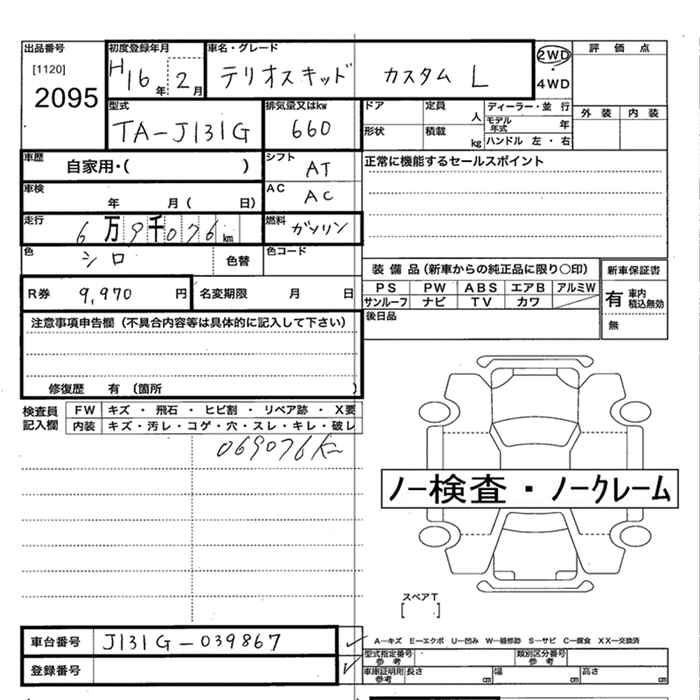 出品番号 初度登録年月 車名・グレード 2WD 評価点
[1120] H16年 2月 テリオスキッド カスタム L ・
2095 4WD
型式 排気量又はkw ドア 定員 人 ディーラー・並 行 外装 内装
TA-J131G 660 モデル年式 年
形状 積載 kg ハンドル 左・右
車歴 自家用・( ) シフト AT 正常に機能するセールスポイント
車検 年 月( 日) AC AC
走行 6万9千076km 燃料 ガソリン
色 シロ 色替 色コード
装備品(新車からの純正品に限り○印) 新車保証書
R券 9,970 円 名変期限 月 日 PS PW ABS エアB アルミW 有 車内積込無効
サンルーフ ナビ TV カワ
注意事項申告欄(不具合内容等は具体的に記入して下さい) 後日品 無
修復歴 有 (箇所 )
検査員記入欄 FW キズ・飛石・ヒビ割・リペア跡・X要
内装 キズ・汚レ・コゲ・穴・スレ・キレ・破レ
069076K
ノー検査・ノークレーム
スペアT
[ ]
車台番号 J131G-039867 A―キズ E―エクボ U―凹み W―補修跡 S―サビ C―腐食 XX―交換済
登録番号 型式指定番号 参考 類別区分番号 参考
車庫証明用 参考 長さ cm 幅 cm 高さ cm